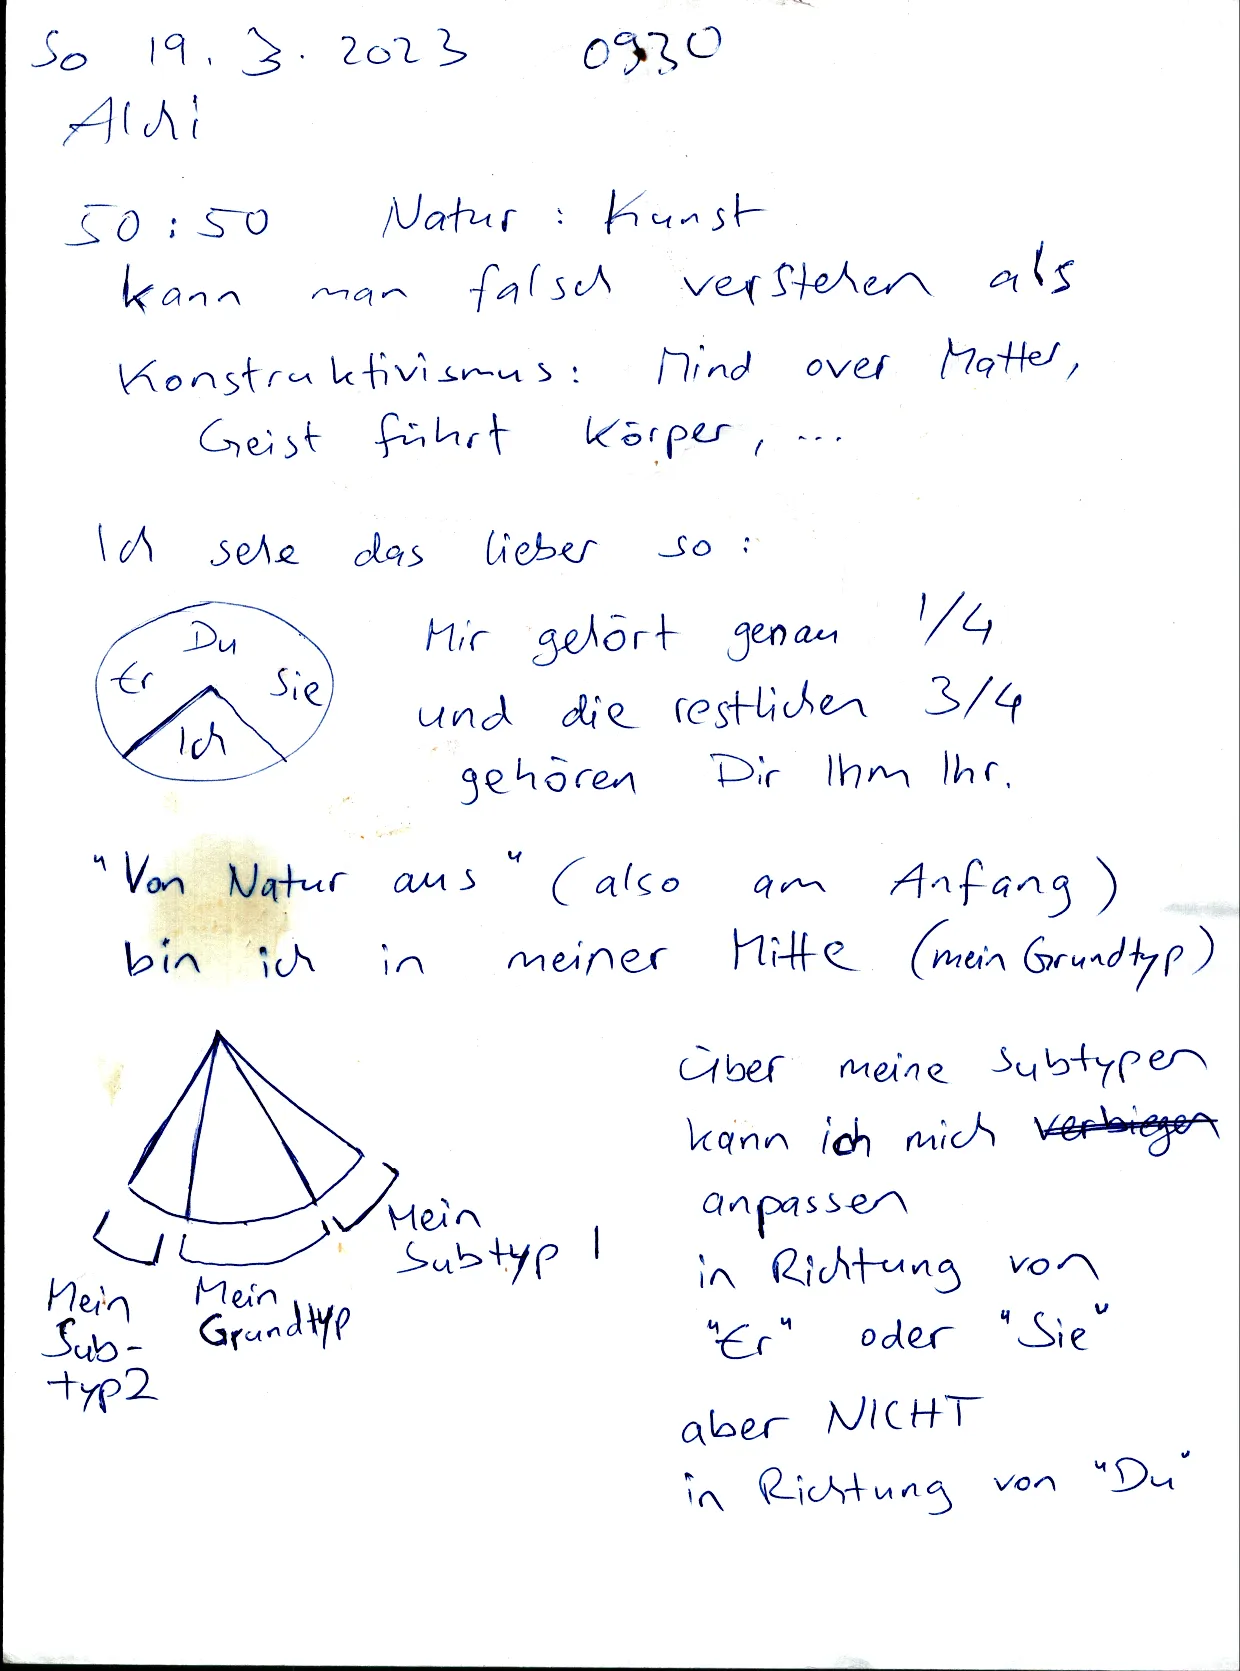 So 19. 3. 2023 0930
50 : 50 Natur : Kunst
kann man falsch verstehen als
Konstruktivismus: Mind over Matter,
Geist führt Körper, ...
Ich sehe das lieber so :
Du
Er Sie
Ich
Mir gehört genau 1/4
und die restlichen 3/4
gehören Dir Ihm Ihr.
"Von Natur aus" (also am Anfang)
bin ich in meiner Mitte (mein Grundtyp)
Mein
Subtyp 1
Mein
Grundtyp
Mein
Sub-
typ2
über meine Subtypen
kann ich mich verbiegen
anpassen
in Richtung von
"Er" oder "Sie"
aber NICHT
in Richtung von "Du"